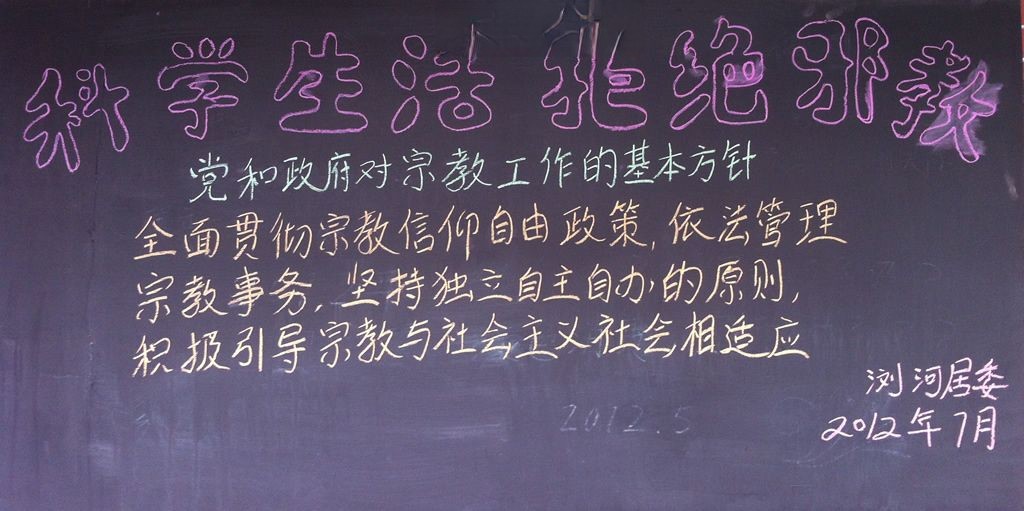 科学生活 拒绝邪教
党和政府对宗教工作的基本方针
全面贯彻宗教信仰自由政策,依法管理
宗教事务,坚持独立自主自办的原则,
积极引导宗教与社会主义社会相适应
2012.5
浏河居委
2012年7月